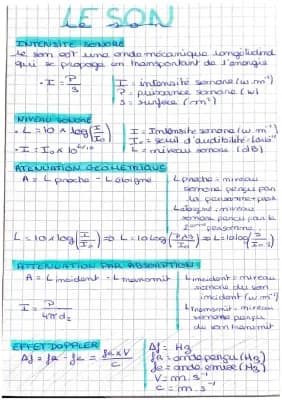 LE SON
INTENSITÉ SONORE
Le son est une onde mécanique longitudinal
qui se propage en transportant de l'énergie
- I = P/S
I = intensité sonore (w.m⁻²)
P = puissance sonore (w)
S = surface (m²)
NIVEAU SONORE
- L = 10 × log(I/I₀)
- I = I₀ × 10^(L/10)
I = Intensité sonore (w.m⁻²)
I₀ = seuil d'audibilité =
L = niveau sonore (dB)
ATENUATION GEOMETRIQUE
A = L proche - L éloigné
L proche = niveau
sonore perçu par
la personne
L éloigné = niveau
sonore perçu par la
personne
L = 10 × log(I/I₀) ⇒ L = 10 log ⇒ L = 10 log
ATTENUATION PAR ABSORPTION
A = L incident - L transmit
L incident = niveau
sonore du son
incident (w.m⁻²)
I = P/4πd²
L transmit = niveau
sonore perçu
du son transmit
EFFET DOPPLER
Δf = fa - fe = fe×V/c
Δf = Hz
fa = onde perçu (Hz)
fe = onde émise (Hz)
V = m.s⁻¹
c = m.s⁻¹